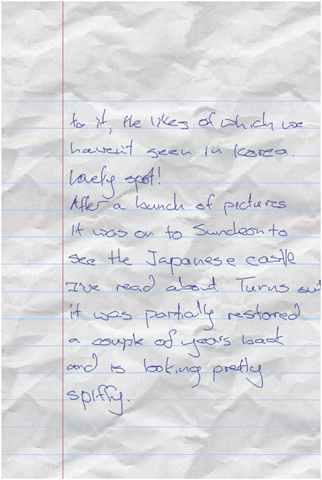 to it, the likes of which we
haven't seen in Korea.
Lovely spot!
After a bunch of pictures
it was on to Sundeon to
see the Japanese castle
I've read about. Turns out
it was partially restored
a couple of years back
and is looking pretty
spiffy.